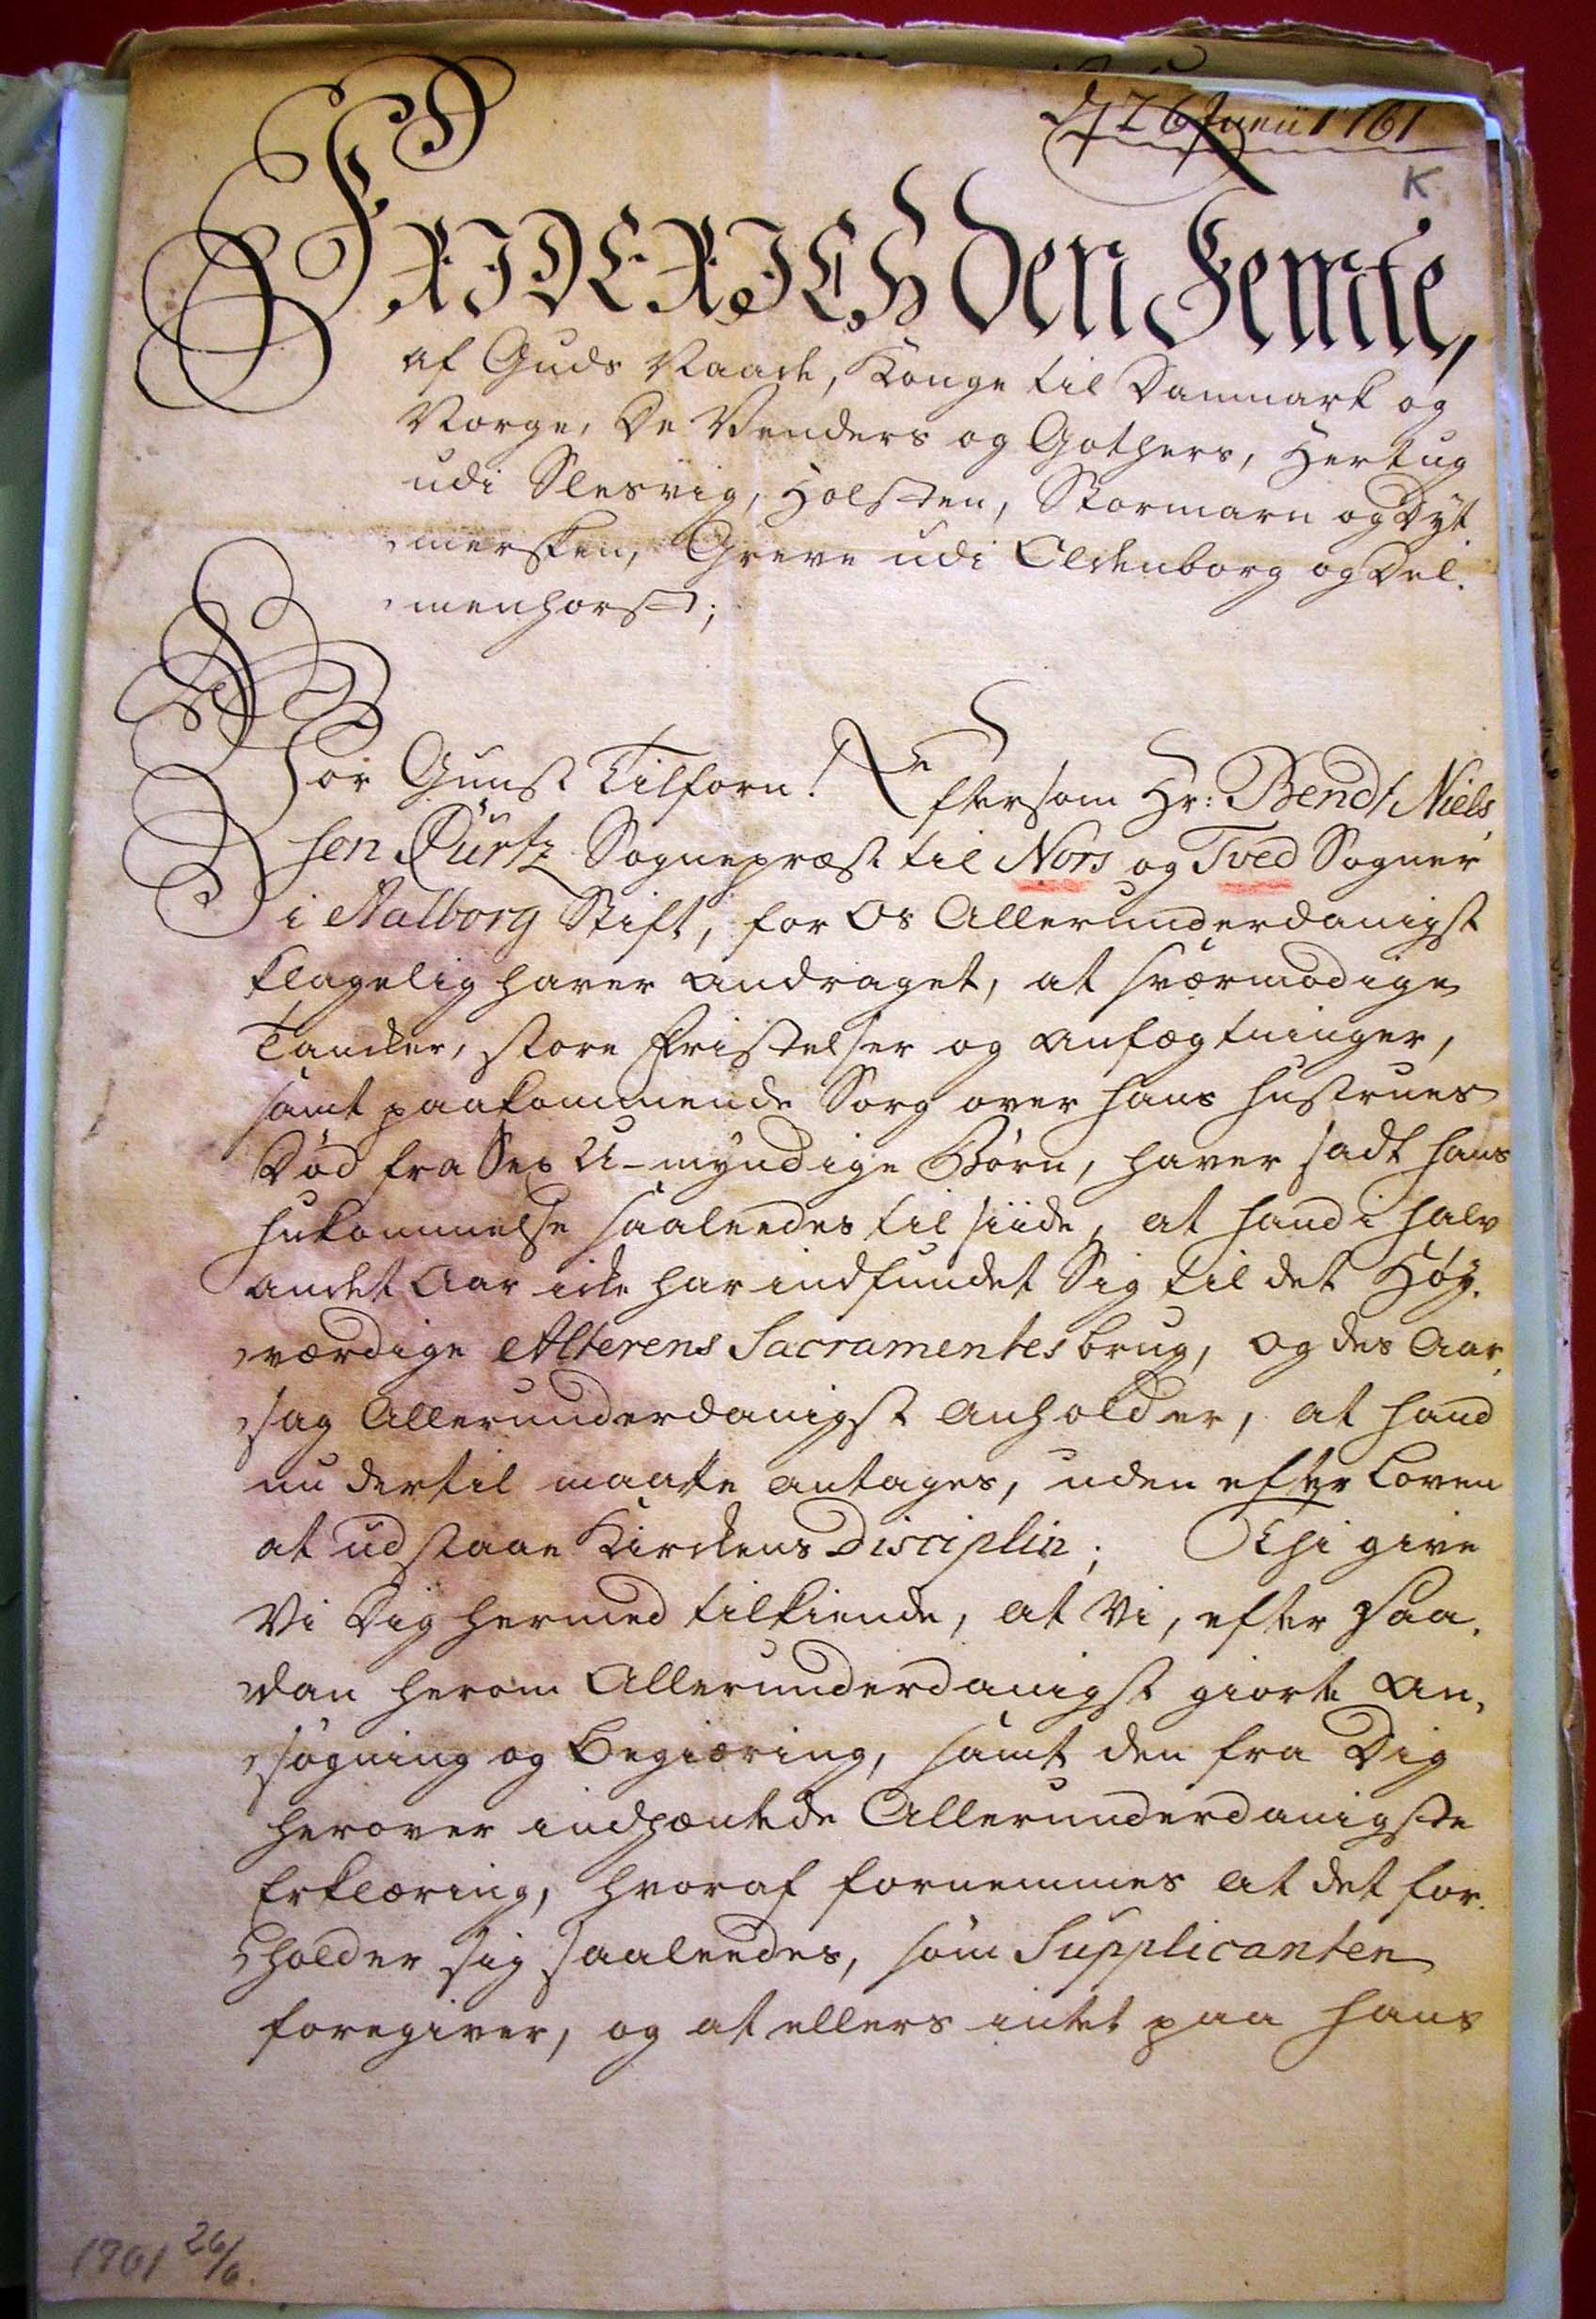 d. 26 Junii 1761
K
FRIDERICH Den Femte,
af Guds Naade, Konge til Danmark og
Norge, De Venders og Gothers, Hertug
udi Slesvig, Holsten, Stormarn og Dyt,
mersken, Greve udi Oldenborg og Del,
menhorst;
Vor Gunst Tilforn! Eftersom Hr: Bendt Niels,
sen Curtz Sognepræst til Nors og Tved Sogner
i Aalborg Stift, for Os Allerunderdanigst
klagelig haver andraget, at sværmodige
Tancker, store Fristelser og Anfægtninger,
samt paakommende Sorg over hans Hustrues
Død fra Sex U-myndige Børn, haver sadt hans
Hukommelse saaleedes til siide, at hand i halv
andet Aar icke har indfundet Sig til det Høy,
værdige Alterens Sacramentes brug, og des Aar,
sag Allerunderdanigst anholder, at hand
nu dertil maatte antages, uden efter Loven
at udstaae Kirckens Disciplin; Thi give
Vi Dig hermed tilkiende, at Vi, efter saa,
dan herom Allerunderdanigst giorte An,
søgning og Begiæring, samt den fra Dig
herover indhæntede Allerunderdanigste
Erklæring, hvoraf fornemmes at det for,
holder sig saaleedes, som Supplicanten
foregiver, og at ellers intet paa hans
1761 26/6.